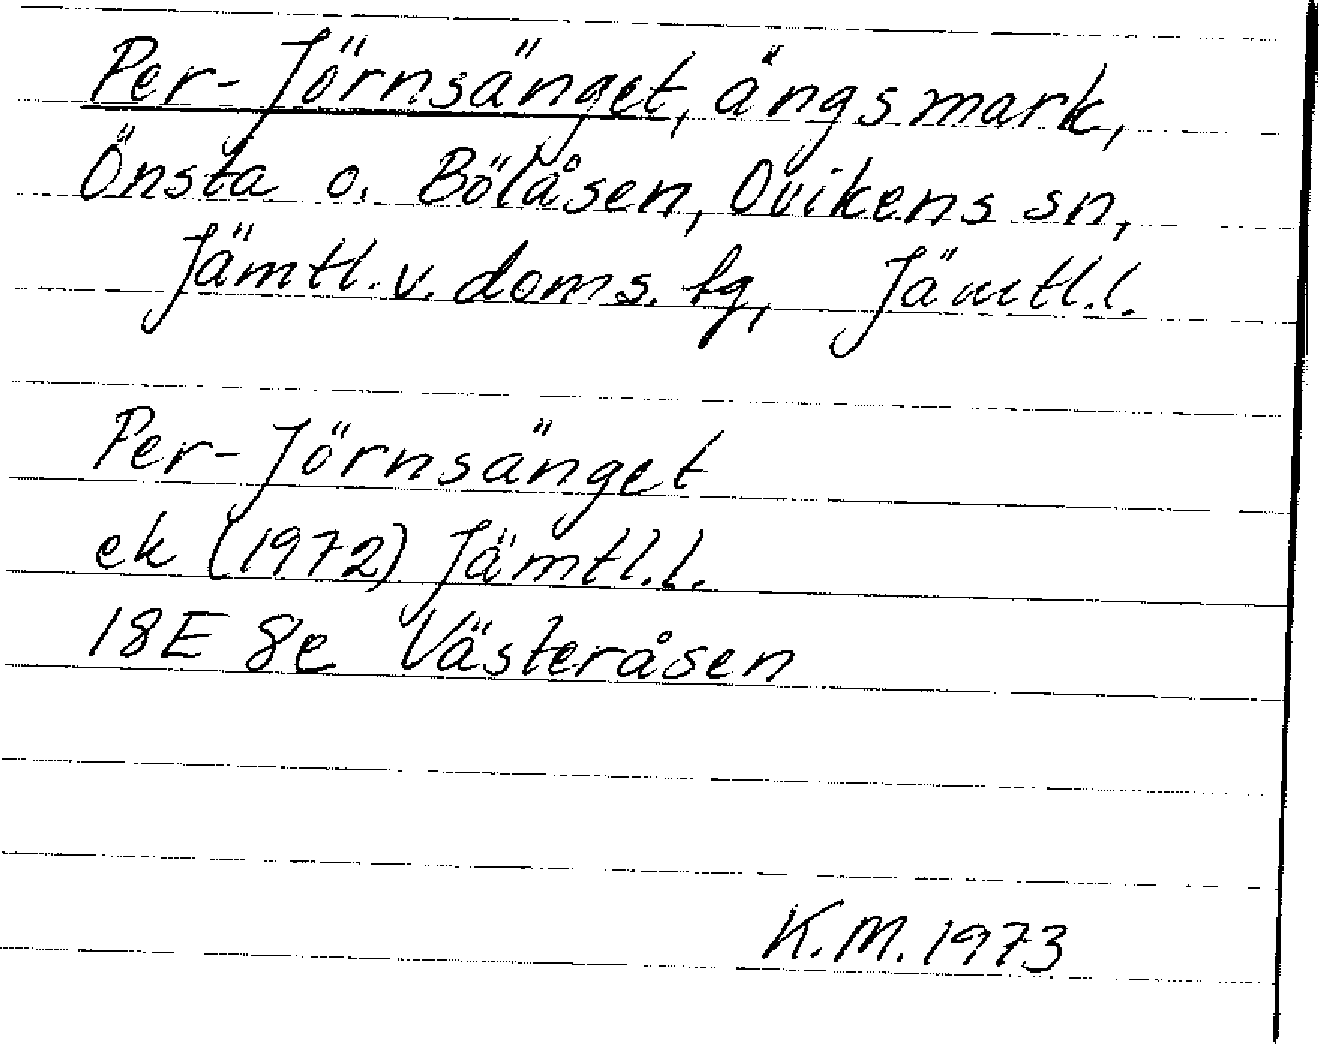 Per-Jörnsänget, ängsmark,
Önsta o. Bölåsen, Ovikens sn,
Jämtl. v. doms. fg, Jämtl.l.
Per-Jörnsänget
ek (1972) Jämtl.l.
18E 8e Västeråsen
K.M. 1973